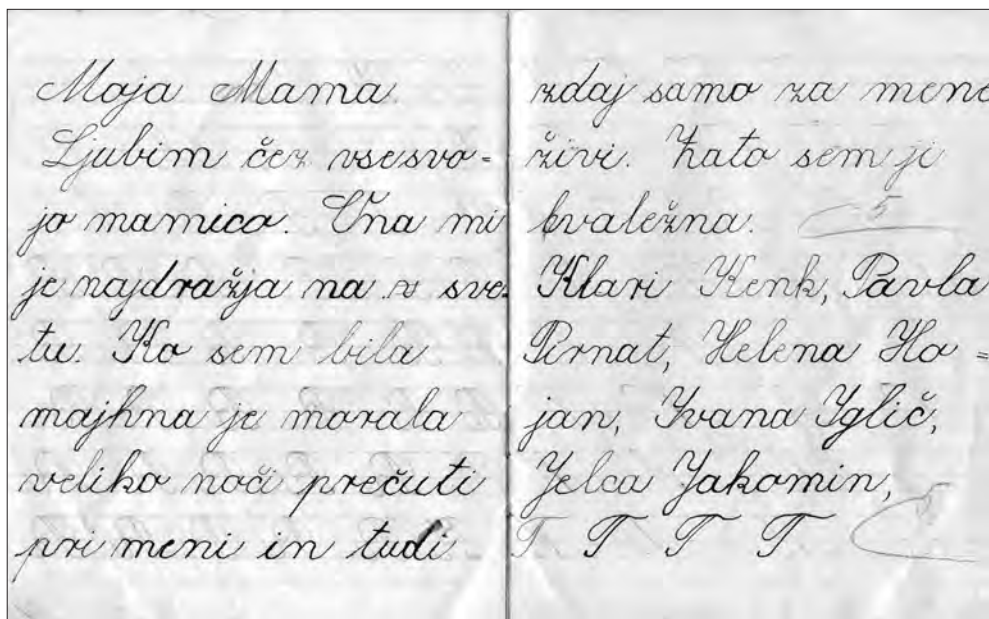 Moja Mama.
Ljubim čez vsesvo=
jo mamico. Ona mi
je najdražja na sve-
tu. Ko sem bila
majhna je morala
veliko noči prečuti
pri meni in tudi
zdaj samo za mene
živi. Zato sem ji
hvaležna. 5
Klari Kenk, Pavla
Pirnat, Helena Ho=
jan, Ivana Iglič,
Jelca Jakomin,
T T T T 5